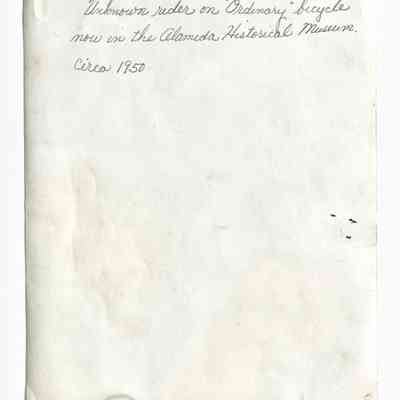 "Unknown rider on "Ordinary" bicycle
now in the Alameda Historical Museum.
Circa 1950